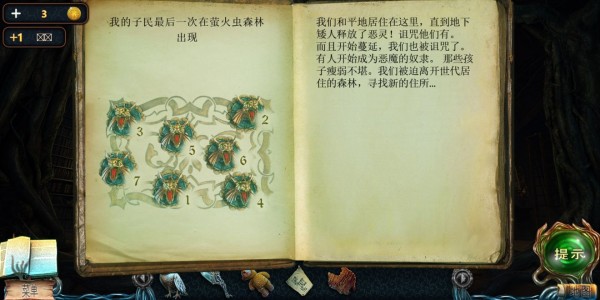 + 3
+1
我的子民最后一次在萤火虫森林
出现
3
2
5
6
7
1
4
我们和平地居住在这里，直到地下
矮人释放了恶灵！诅咒他们有。
而且开始蔓延，我们也被诅咒了。
有人开始成为恶魔的奴隶。 那些孩
子瘦弱不堪。我们被迫离开世代居
住的森林，寻找新的住所...
菜单
提示